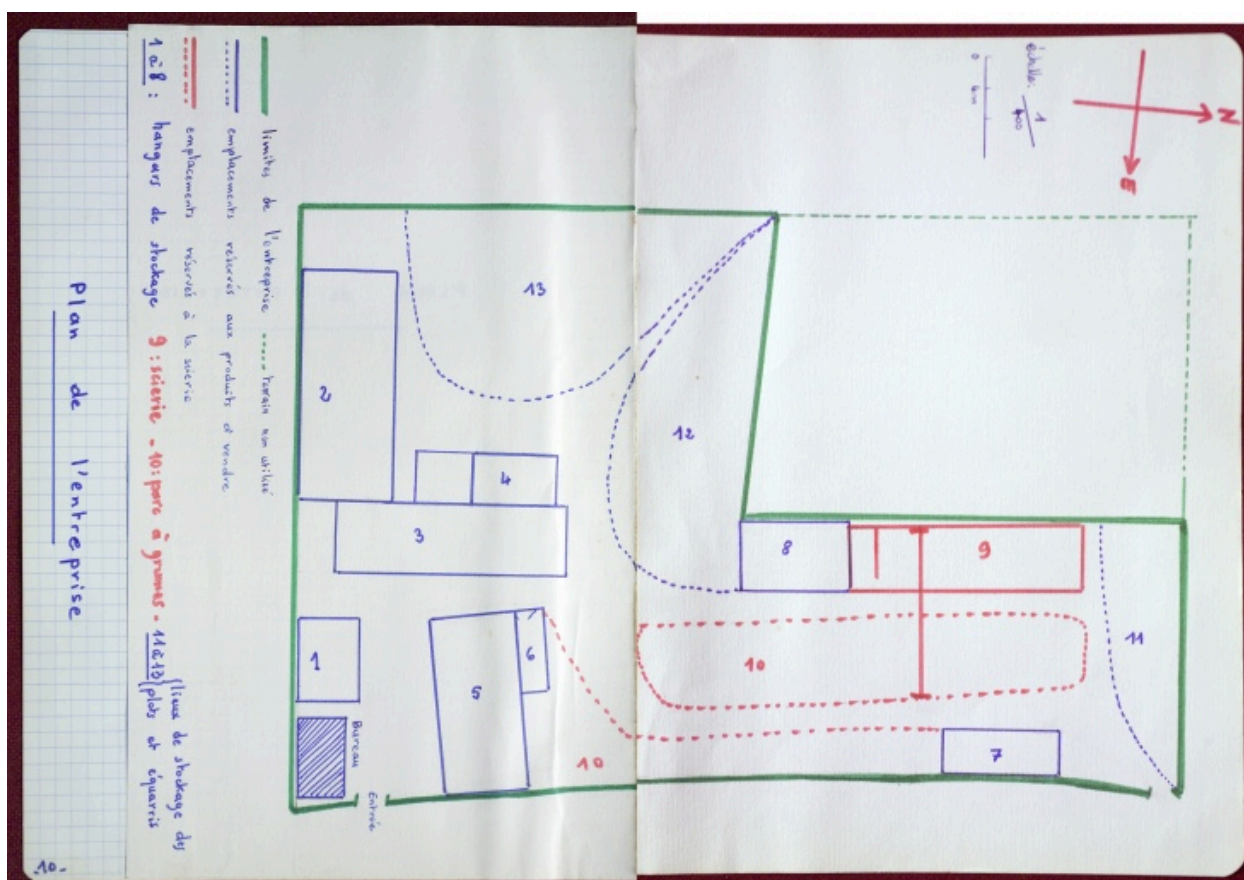 Plan de l'entreprise
limites de l'entreprise terrain non utilisé
emplacements réservés aux produits à vendre
emplacements réservés à la scierie
1 à 8 : hangars de stockage 9 : scierie - 10 : parc à grumes - 11 à 13 lieux de stockage des
plots et équarris
échelle: 1/400
0
N
E
13
2
12
4
3
8
9
11
1
5
6
10
10
7
Bureau
Entrée
-10-